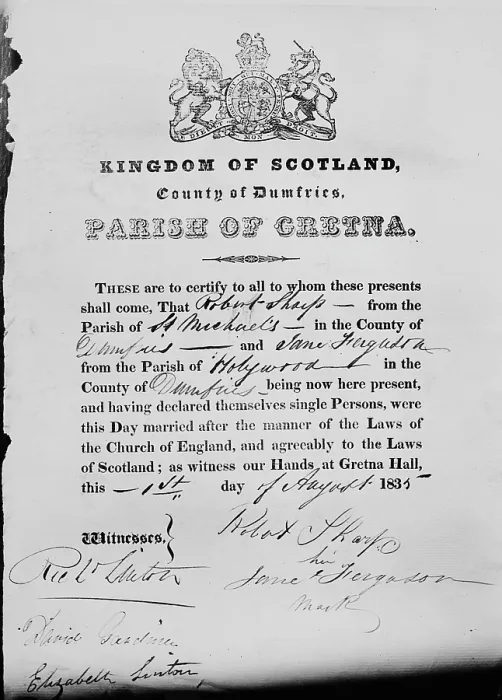 DIEU ET MON DROIT.
KINGDOM OF SCOTLAND,
County of Dumfries,
PARISH OF GRETNA.
THESE are to certify to all to whom these presents
shall come, That Robert Sharp — from the
Parish of St Michael's — in the County of
Dumfries — and Jane Ferguson
from the Parish of Holywood in the
County of Dumfries — being now here present,
and having declared themselves single Persons, were
this Day married after the manner of the Laws of
the Church of England, and agreeably to the Laws
of Scotland; as witness our Hands at Gretna Hall,
this — 1st day of August 1835
Witnesses,
Robert Sharp
Richd Linton
her
Jane x Ferguson
Mark
David Gardiner
Elizabeth Linton